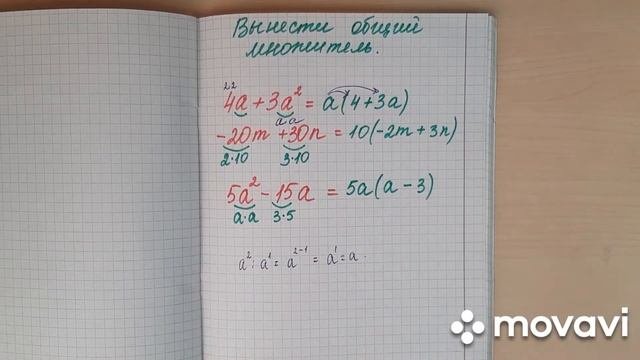 Вынести общий
множитель.
2 2
4a + 3a² = a(4+3a)
a·a
-20m +30n = 10(-2m + 3n)
2·10 3·10
5a² - 15a = 5a(a - 3)
a·a 3·5
a² : a¹ = a²⁻¹ = a¹ = a.
movavi